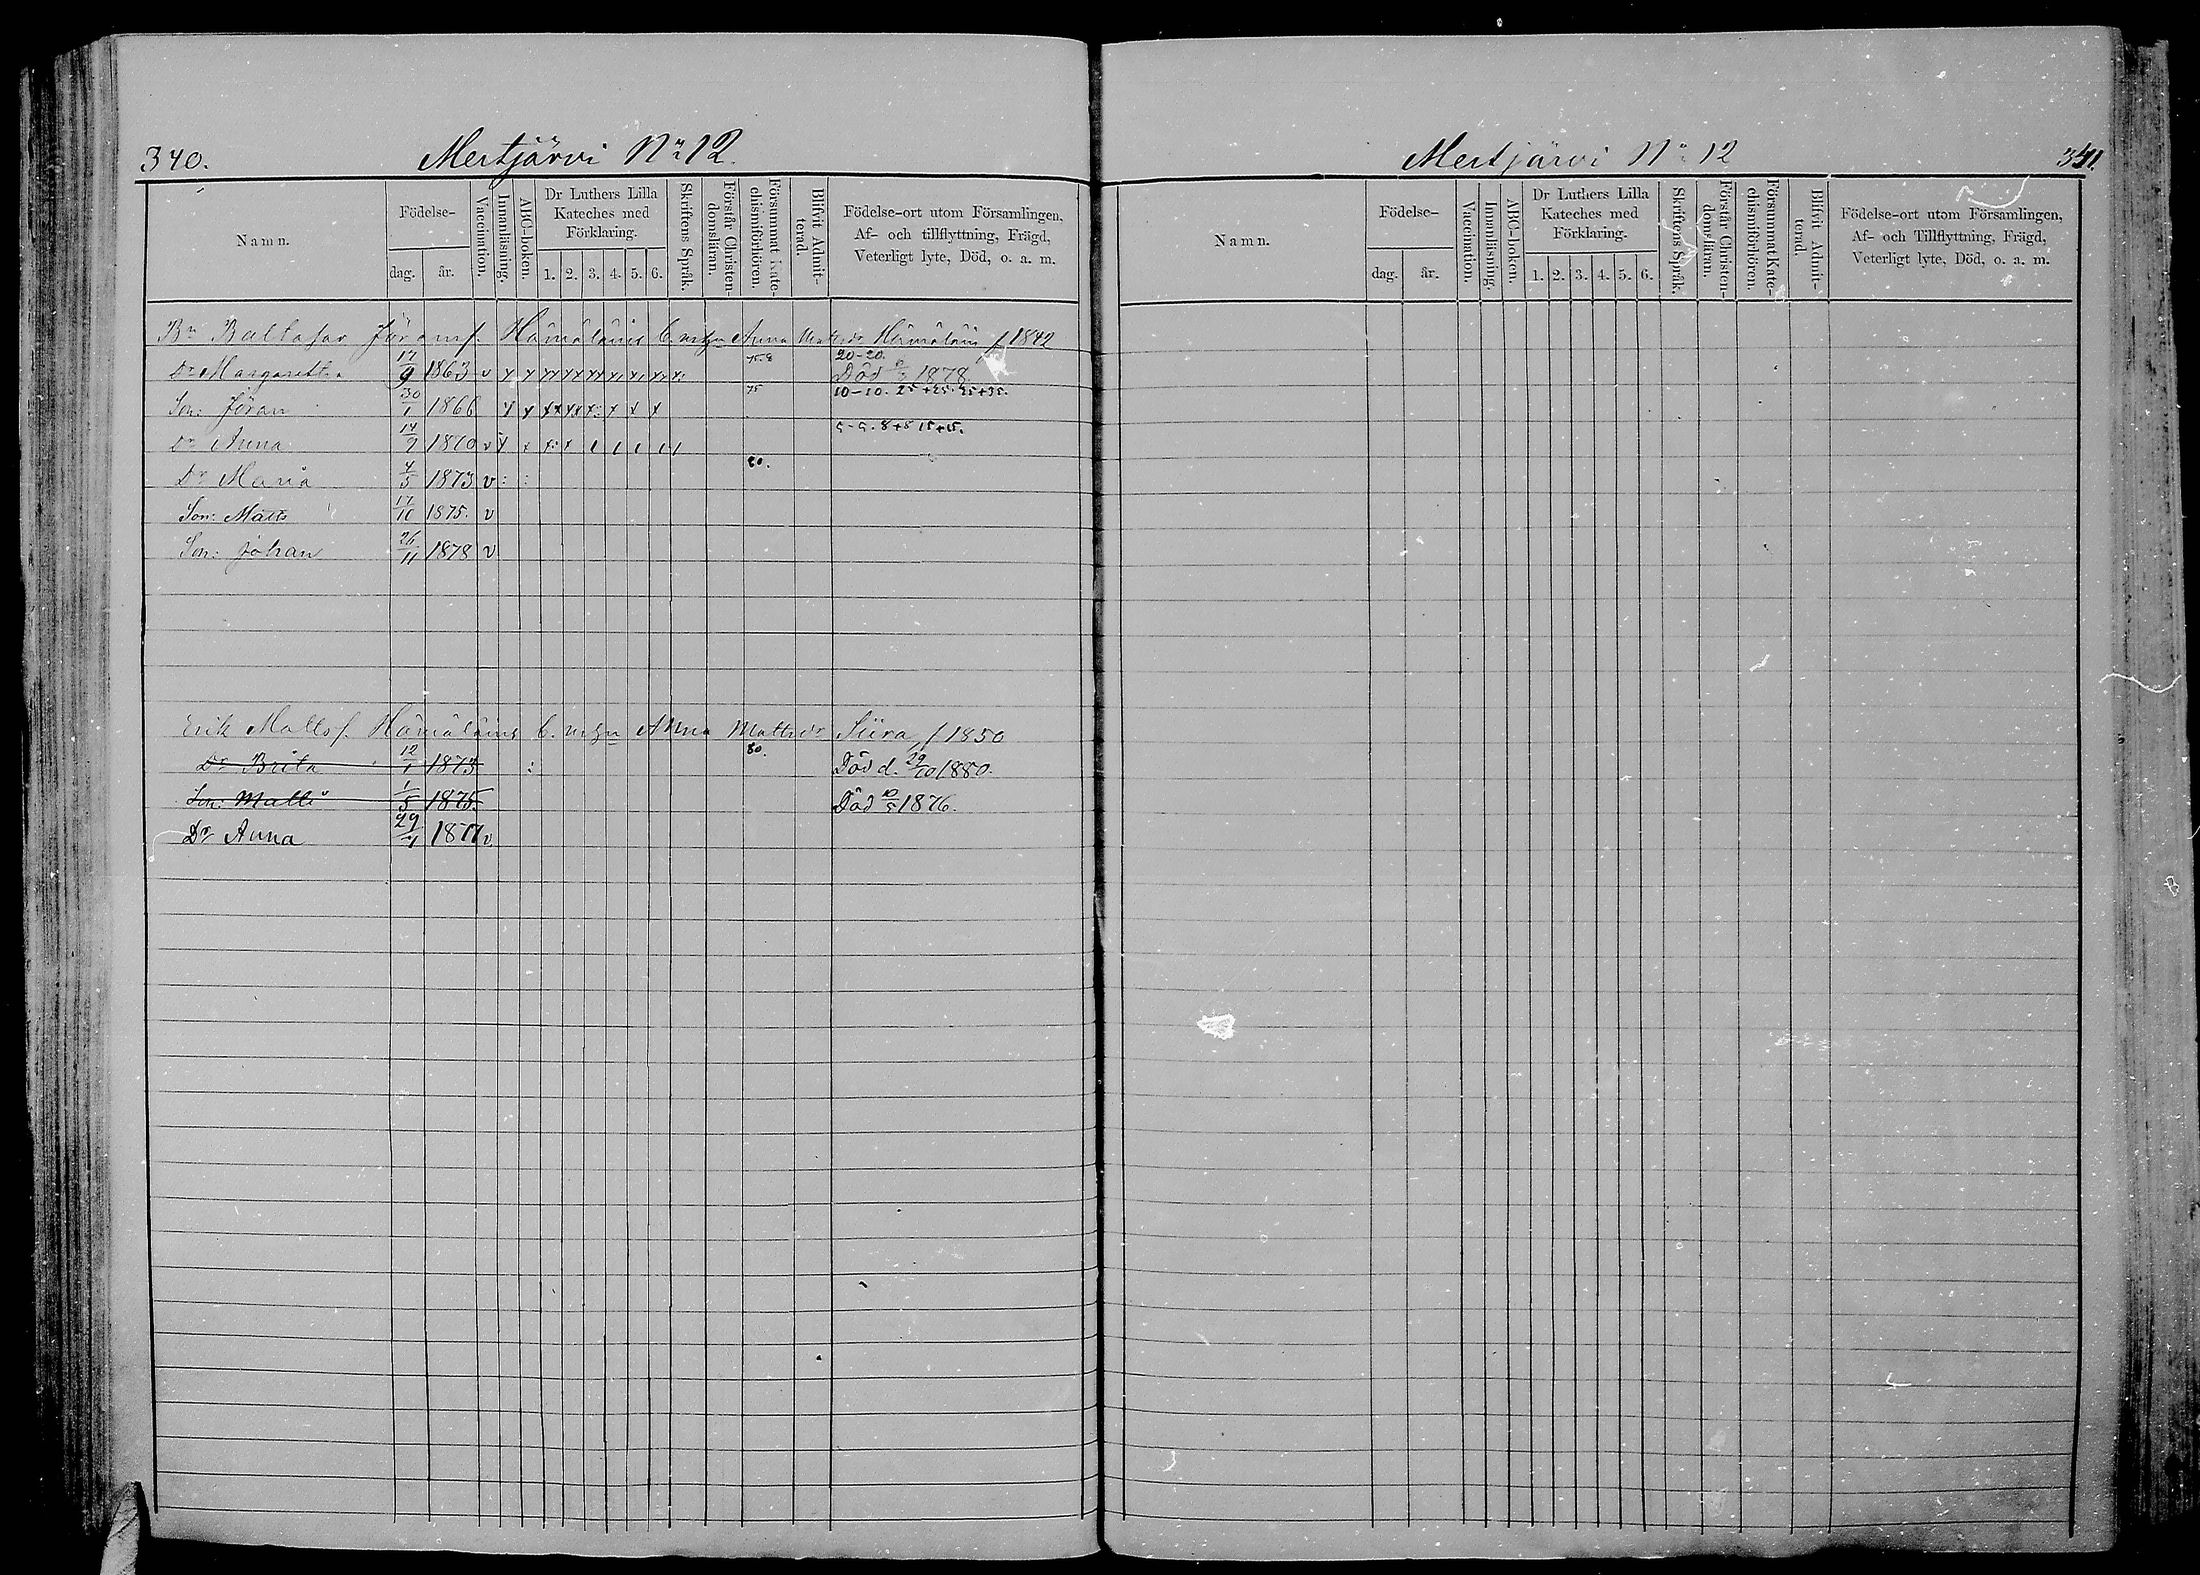 340.
Mertjärvi No 12.
Namn.
Födelse-
dag.
år.
Vaccination.
Innanläsning.
ABC-boken.
Dr Luthers Lilla
Kateches med
Förklaring.
1. 2. 3. 4. 5. 6.
Skriftens Språk.
Förstår Christen-
domsläran.
Försummat Kate-
chismiförhören.
Blifvit Admit-
terad.
Födelse-ort utom Församlingen,
Af- och tillflyttning, Frägd,
Veterligt lyte, Död, o. a. m.
Bn Baltasar Jöransf. Hämäläinis Anna Hämäläin f 1842
Dr Margaretha 17/9 1863 v 75.8 20-20. Död 1878
Son: Jöran 30/1 1866 75 10-10. 25+25. 35+35.
Dr Anna 14/7 1870 v 5-5. 8+8 15+15.
Dr Maria 4/5 1873 v 80.
Son: Matts 17/10 1875. v
Son: Johan 26/11 1878 v
Erik Mattsf. Hämäläinis Anna Mattsdr Siira f 1850
Dr Brita 12/1 1873 80. Död d. 29/10 1880.
Son: Matts 1/5 1875. Död 10/5 1876.
Dr Anna 29/7 1877 v
Mertjärvi No 12
341.
Namn.
Födelse-
dag.
år.
Vaccination.
Innanläsning.
ABC-boken.
Dr Luthers Lilla
Kateches med
Förklaring.
1. 2. 3. 4. 5. 6.
Skriftens Språk.
Förstår Christen-
domsläran.
Försummat Kate-
chismiförhören.
Blifvit Admit-
terad.
Födelse-ort utom Församlingen,
Af- och Tillflyttning, Frägd,
Veterligt lyte, Död, o. a. m.